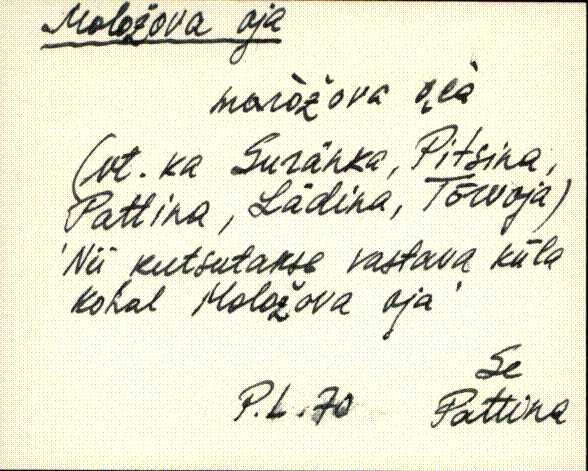 Moložova oja
moròžova o̬ià
(vt. ka Suränka, Pitsina,
Pattina, Lädina, Tõrvoja)
'Nii kutsutakse vastava küla
kohal Moložova oja'
Se
P.L. 70 Pattina